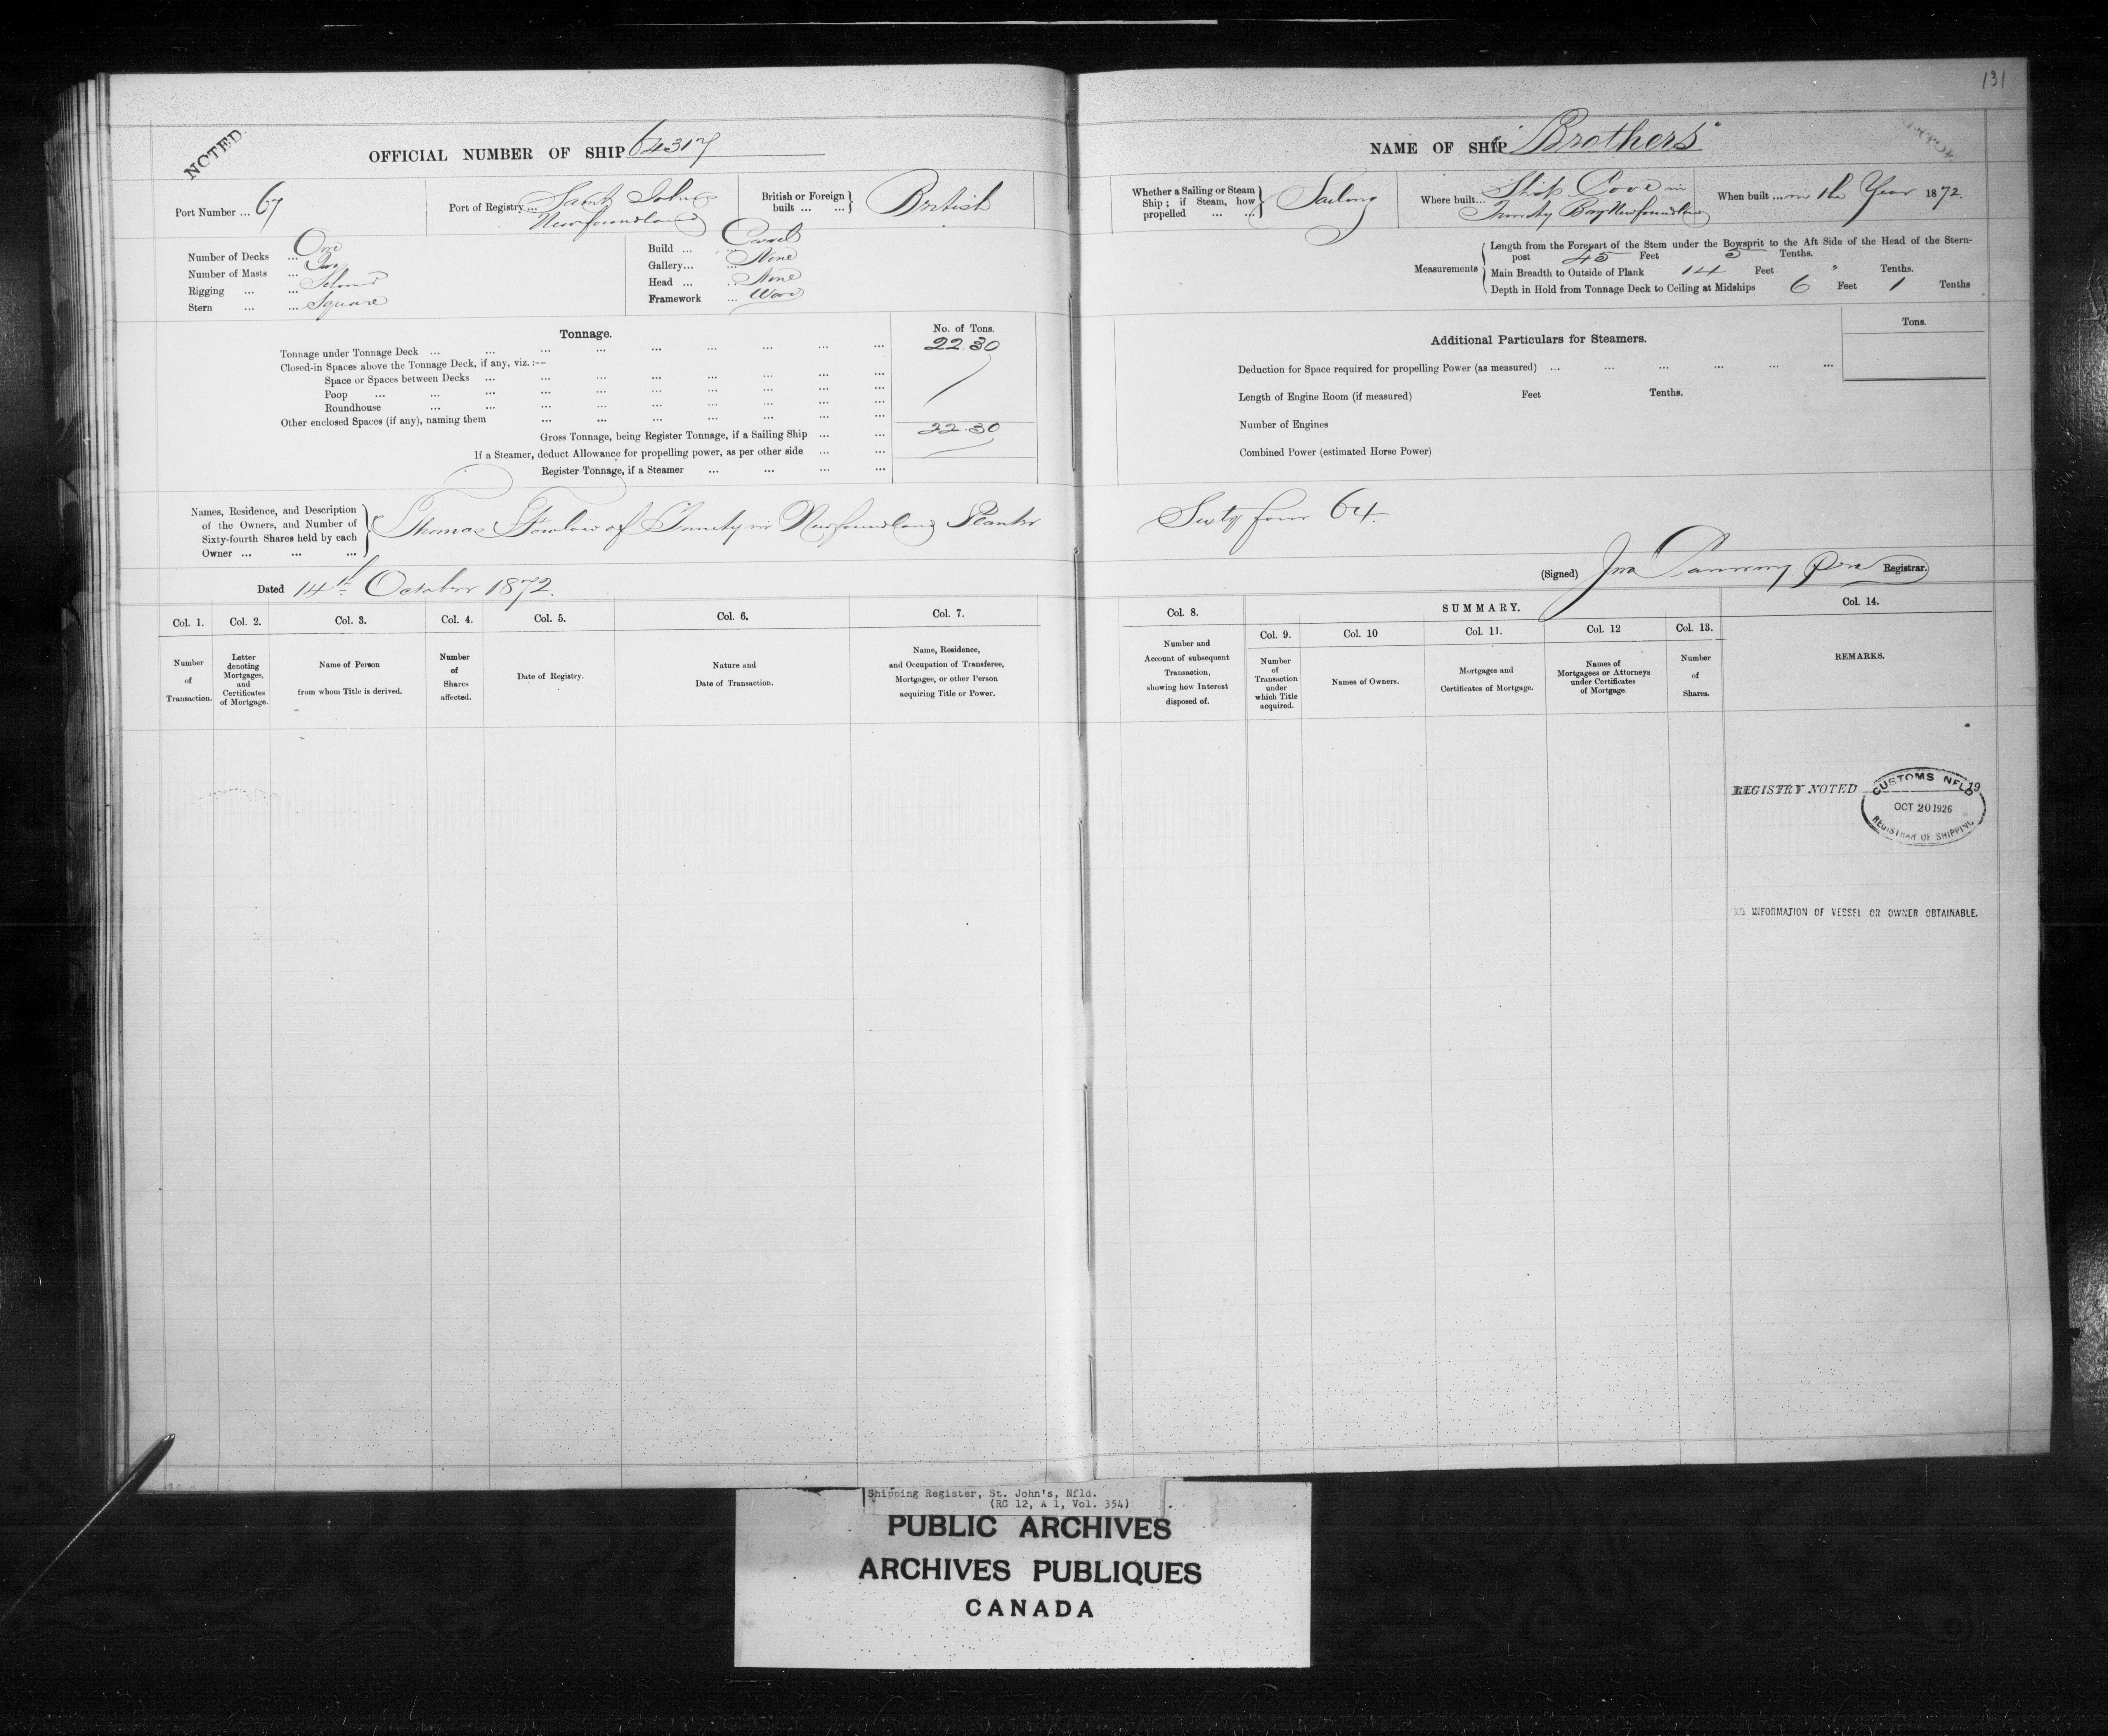 131
NOTED
OFFICIAL NUMBER OF SHIP 64317
NAME OF SHIP "Brothers"
Port Number ... 67
Port of Registry ... Saint Johns
Newfoundland
British or Foreign built ... ... British
Whether a Sailing or Steam Ship; if Steam, how propelled ... ... Sailing
Where built... Ship Cove in
Trinity Bay Newfoundland
When built ... in the Year 1872.
Number of Decks ... One
Number of Masts ... Two
Rigging ... ... Schooner
Stern ... ... Square
Build ... ... Carvel
Gallery... ... None
Head ... ... None
Framework ... Wood
Measurements
Length from the Forepart of the Stem under the Bowsprit to the Aft Side of the Head of the Stern-
post 45 Feet 5 Tenths.
Main Breadth to Outside of Plank 14 Feet " Tenths.
Depth in Hold from Tonnage Deck to Ceiling at Midships 6 Feet 1 Tenths
Tonnage.
No. of Tons.
Tonnage under Tonnage Deck ... ... ... ... ... ... ... ... ... 22.30
Closed-in Spaces above the Tonnage Deck, if any, viz.:—
Space or Spaces between Decks ... ... ... ... ... ... ... ...
Poop ... ... ... ... ... ... ... ... ...
Roundhouse ... ... ... ... ... ... ... ... ...
Other enclosed Spaces (if any), naming them ... ... ... ... ... ... ...
Gross Tonnage, being Register Tonnage, if a Sailing Ship ... ... 22.30
If a Steamer, deduct Allowance for propelling power, as per other side ... ...
Register Tonnage, if a Steamer ... ... ... ...
Additional Particulars for Steamers.
Tons.
Deduction for Space required for propelling Power (as measured) ... ... ... ... ... ...
Length of Engine Room (if measured) Feet Tenths.
Number of Engines
Combined Power (estimated Horse Power)
Names, Residence, and Description
of the Owners, and Number of
Sixty-fourth Shares held by each
Owner ... ... ...
Thomas Fowlow of Trinity in Newfoundland Planter
Sixty four 64.
Dated 14th October 1872.
(Signed) Jno Registrar.
Col. 1.
Number
of
Transaction.
Col. 2.
Letter
denoting
Mortgages,
and
Certificates
of Mortgage.
Col. 3.
Name of Person
from whom Title is derived.
Col. 4.
Number
of
Shares
affected.
Col. 5.
Date of Registry.
Col. 6.
Nature and
Date of Transaction.
Col. 7.
Name, Residence,
and Occupation of Transferee,
Mortgagee, or other Person
acquiring Title or Power.
Col. 8.
Number and
Account of subsequent
Transaction,
showing how Interest
disposed of.
SUMMARY.
Col. 9.
Number
of
Transaction
under
which Title
acquired.
Col. 10
Names of Owners.
Col. 11.
Mortgages and
Certificates of Mortgage.
Col. 12
Names of
Mortgagees or Attorneys
under Certificates
of Mortgage.
Col. 13.
Number
of
Shares.
Col. 14.
REMARKS.
REGISTRY NOTED 19
CUSTOMS NFLD
OCT 20 1926
REGISTRAR OF SHIPPING
NO INFORMATION OF VESSEL OR OWNER OBTAINABLE.
Shipping Register, St. John's, Nfld.
(RG 12, A 1, Vol. 354)
PUBLIC ARCHIVES
ARCHIVES PUBLIQUES
CANADA